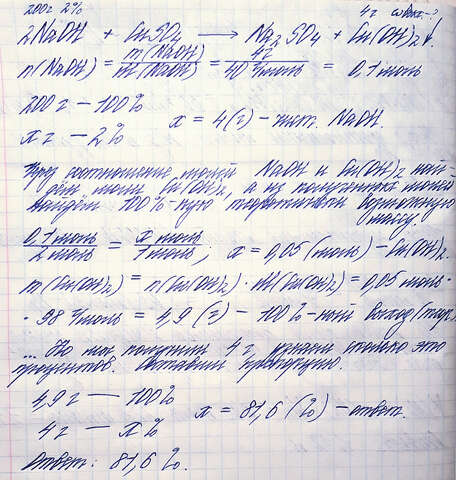 200г 2% 4г wвых-?
2NaOH + CuSO4 → Na2SO4 + Cu(OH)2↓.
n(NaOH) = m(NaOH)/M(NaOH) = 4г/40 г/моль = 0,1 моль
200 г — 100%
x г — 2% x = 4(г) – чист. NaOH.
Через соотношение молей NaOH и Cu(OH)2 най-
дём моли Cu(OH)2, а из полученных молей
найдём 100%-ную теоретически возможную
массу.
0,1 моль/2 моль = x моль/1 моль; x = 0,05 (моль) – Cu(OH)2.
m(Cu(OH)2) = n(Cu(OH)2) · M(Cu(OH)2) = 0,05 моль ·
· 98 г/моль = 4,9 (г) – 100%-ный выход (теор.)
... Но мы получили 4 г, узнаем сколько это
процентов. Составим пропорцию.
4,9 г — 100%
4 г — x% x = 81,6 (%) – ответ.
Ответ: 81,6 %.